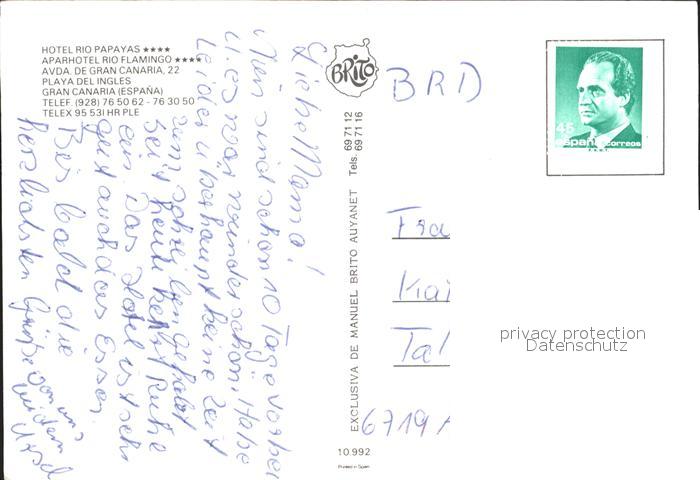 HOTEL RIO PAPAYAS ★★★★
APARHOTEL RIO FLAMINGO ★★★★
AVDA. DE GRAN CANARIA, 22
PLAYA DEL INGLES
GRAN CANARIA (ESPAÑA)
TELEF. (928) 76 50 62 - 76 30 50
TELEX 95 531 HR PLE
Liebe Mama!
Nun sind schon 10 Tage vorbei
u. es war wunderschön. Habe
Leider überhaupt keine Zeit
zum schreiben gehabt
seit heute kehrt Ruhe
ein. Das Hotel ist sehr
gut auch das Essen.
Bis bald die
herzlichsten Grüße von uns
beiden
Ursel
BRITO
EXCLUSIVA DE MANUEL BRITO AUYANET Tels. 69 71 12
69 71 16
10.992
Printed in Spain
BRD
45
españa correos
F.N.M.T.
Fra
Kai
Tal
6719
privacy protection
Datenschutz